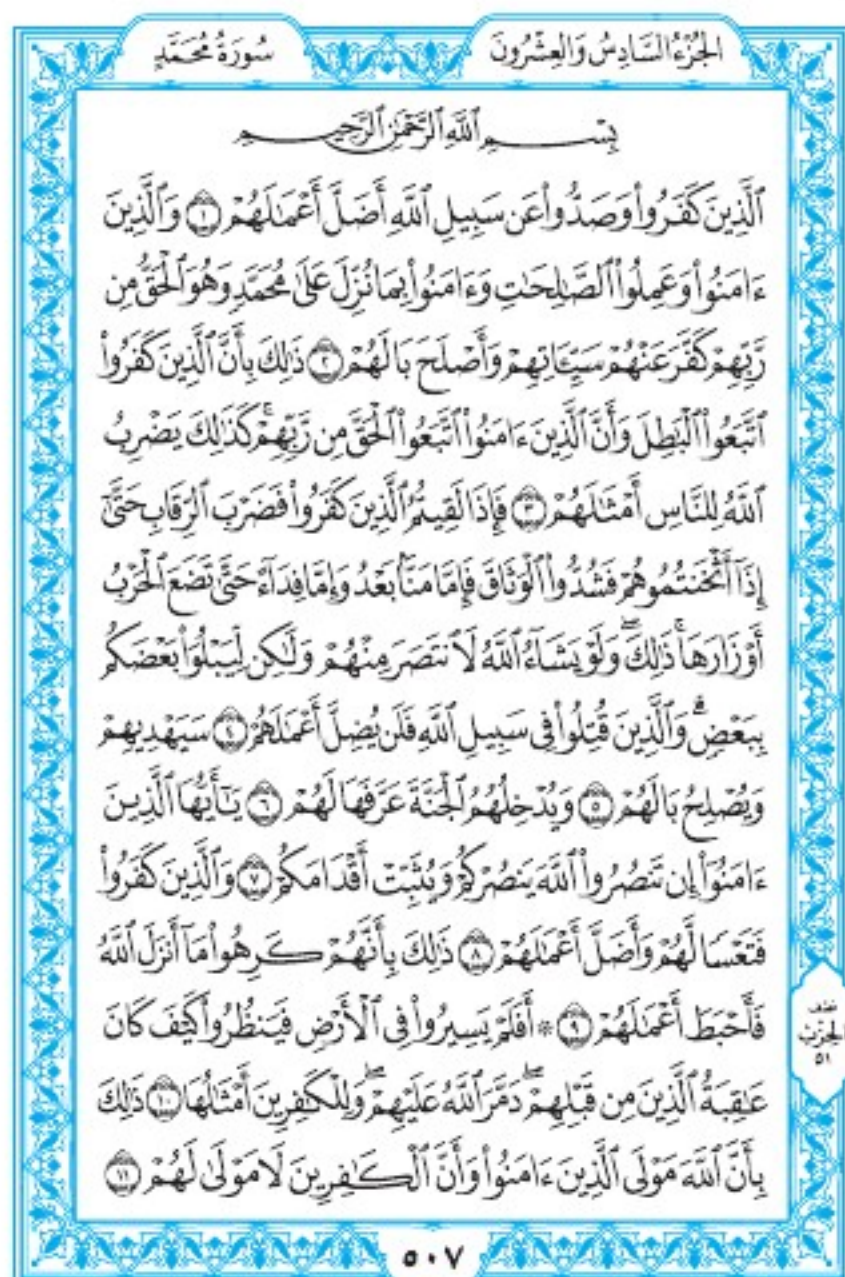 الجُزْءُ السَّادِسُ وَالعِشْرُونَ
سُورَةُ مُحَمَّدٍ
بِسْمِ ٱللَّهِ ٱلرَّحْمَٰنِ ٱلرَّحِيمِ
ٱلَّذِينَ كَفَرُواْ وَصَدُّواْ عَن سَبِيلِ ٱللَّهِ أَضَلَّ أَعْمَٰلَهُمْ ١ وَٱلَّذِينَ
ءَامَنُواْ وَعَمِلُواْ ٱلصَّٰلِحَٰتِ وَءَامَنُواْ بِمَا نُزِّلَ عَلَىٰ مُحَمَّدٍ وَهُوَ ٱلْحَقُّ مِن
رَّبِّهِمْ كَفَّرَ عَنْهُمْ سَيِّـَٔاتِهِمْ وَأَصْلَحَ بَالَهُمْ ٢ ذَٰلِكَ بِأَنَّ ٱلَّذِينَ كَفَرُواْ
ٱتَّبَعُواْ ٱلْبَٰطِلَ وَأَنَّ ٱلَّذِينَ ءَامَنُواْ ٱتَّبَعُواْ ٱلْحَقَّ مِن رَّبِّهِمْ ۚ كَذَٰلِكَ يَضْرِبُ
ٱللَّهُ لِلنَّاسِ أَمْثَٰلَهُمْ ٣ فَإِذَا لَقِيتُمُ ٱلَّذِينَ كَفَرُواْ فَضَرْبَ ٱلرِّقَابِ حَتَّىٰٓ
إِذَآ أَثْخَنتُمُوهُمْ فَشُدُّواْ ٱلْوَثَاقَ فَإِمَّا مَنَّۢا بَعْدُ وَإِمَّا فِدَآءً حَتَّىٰ تَضَعَ ٱلْحَرْبُ
أَوْزَارَهَا ۚ ذَٰلِكَ ۖ وَلَوْ يَشَآءُ ٱللَّهُ لَٱنتَصَرَ مِنْهُمْ وَلَٰكِن لِّيَبْلُوَاْ بَعْضَكُم
بِبَعْضٍ ۗ وَٱلَّذِينَ قُتِلُواْ فِى سَبِيلِ ٱللَّهِ فَلَن يُضِلَّ أَعْمَٰلَهُمْ ٤ سَيَهْدِيهِمْ
وَيُصْلِحُ بَالَهُمْ ٥ وَيُدْخِلُهُمُ ٱلْجَنَّةَ عَرَّفَهَا لَهُمْ ٦ يَٰٓأَيُّهَا ٱلَّذِينَ
ءَامَنُوٓاْ إِن تَنصُرُواْ ٱللَّهَ يَنصُرْكُمْ وَيُثَبِّتْ أَقْدَامَكُمْ ٧ وَٱلَّذِينَ كَفَرُواْ
فَتَعْسًا لَّهُمْ وَأَضَلَّ أَعْمَٰلَهُمْ ٨ ذَٰلِكَ بِأَنَّهُمْ كَرِهُواْ مَآ أَنزَلَ ٱللَّهُ
فَأَحْبَطَ أَعْمَٰلَهُمْ ٩ ۞ أَفَلَمْ يَسِيرُواْ فِى ٱلْأَرْضِ فَيَنظُرُواْ كَيْفَ كَانَ
عَٰقِبَةُ ٱلَّذِينَ مِن قَبْلِهِمْ ۖ دَمَّرَ ٱللَّهُ عَلَيْهِمْ ۖ وَلِلْكَٰفِرِينَ أَمْثَٰلُهَا ١٠ ذَٰلِكَ
بِأَنَّ ٱللَّهَ مَوْلَى ٱلَّذِينَ ءَامَنُواْ وَأَنَّ ٱلْكَٰفِرِينَ لَا مَوْلَىٰ لَهُمْ ١١
نصف
الحزب
٥١
٥٠٧